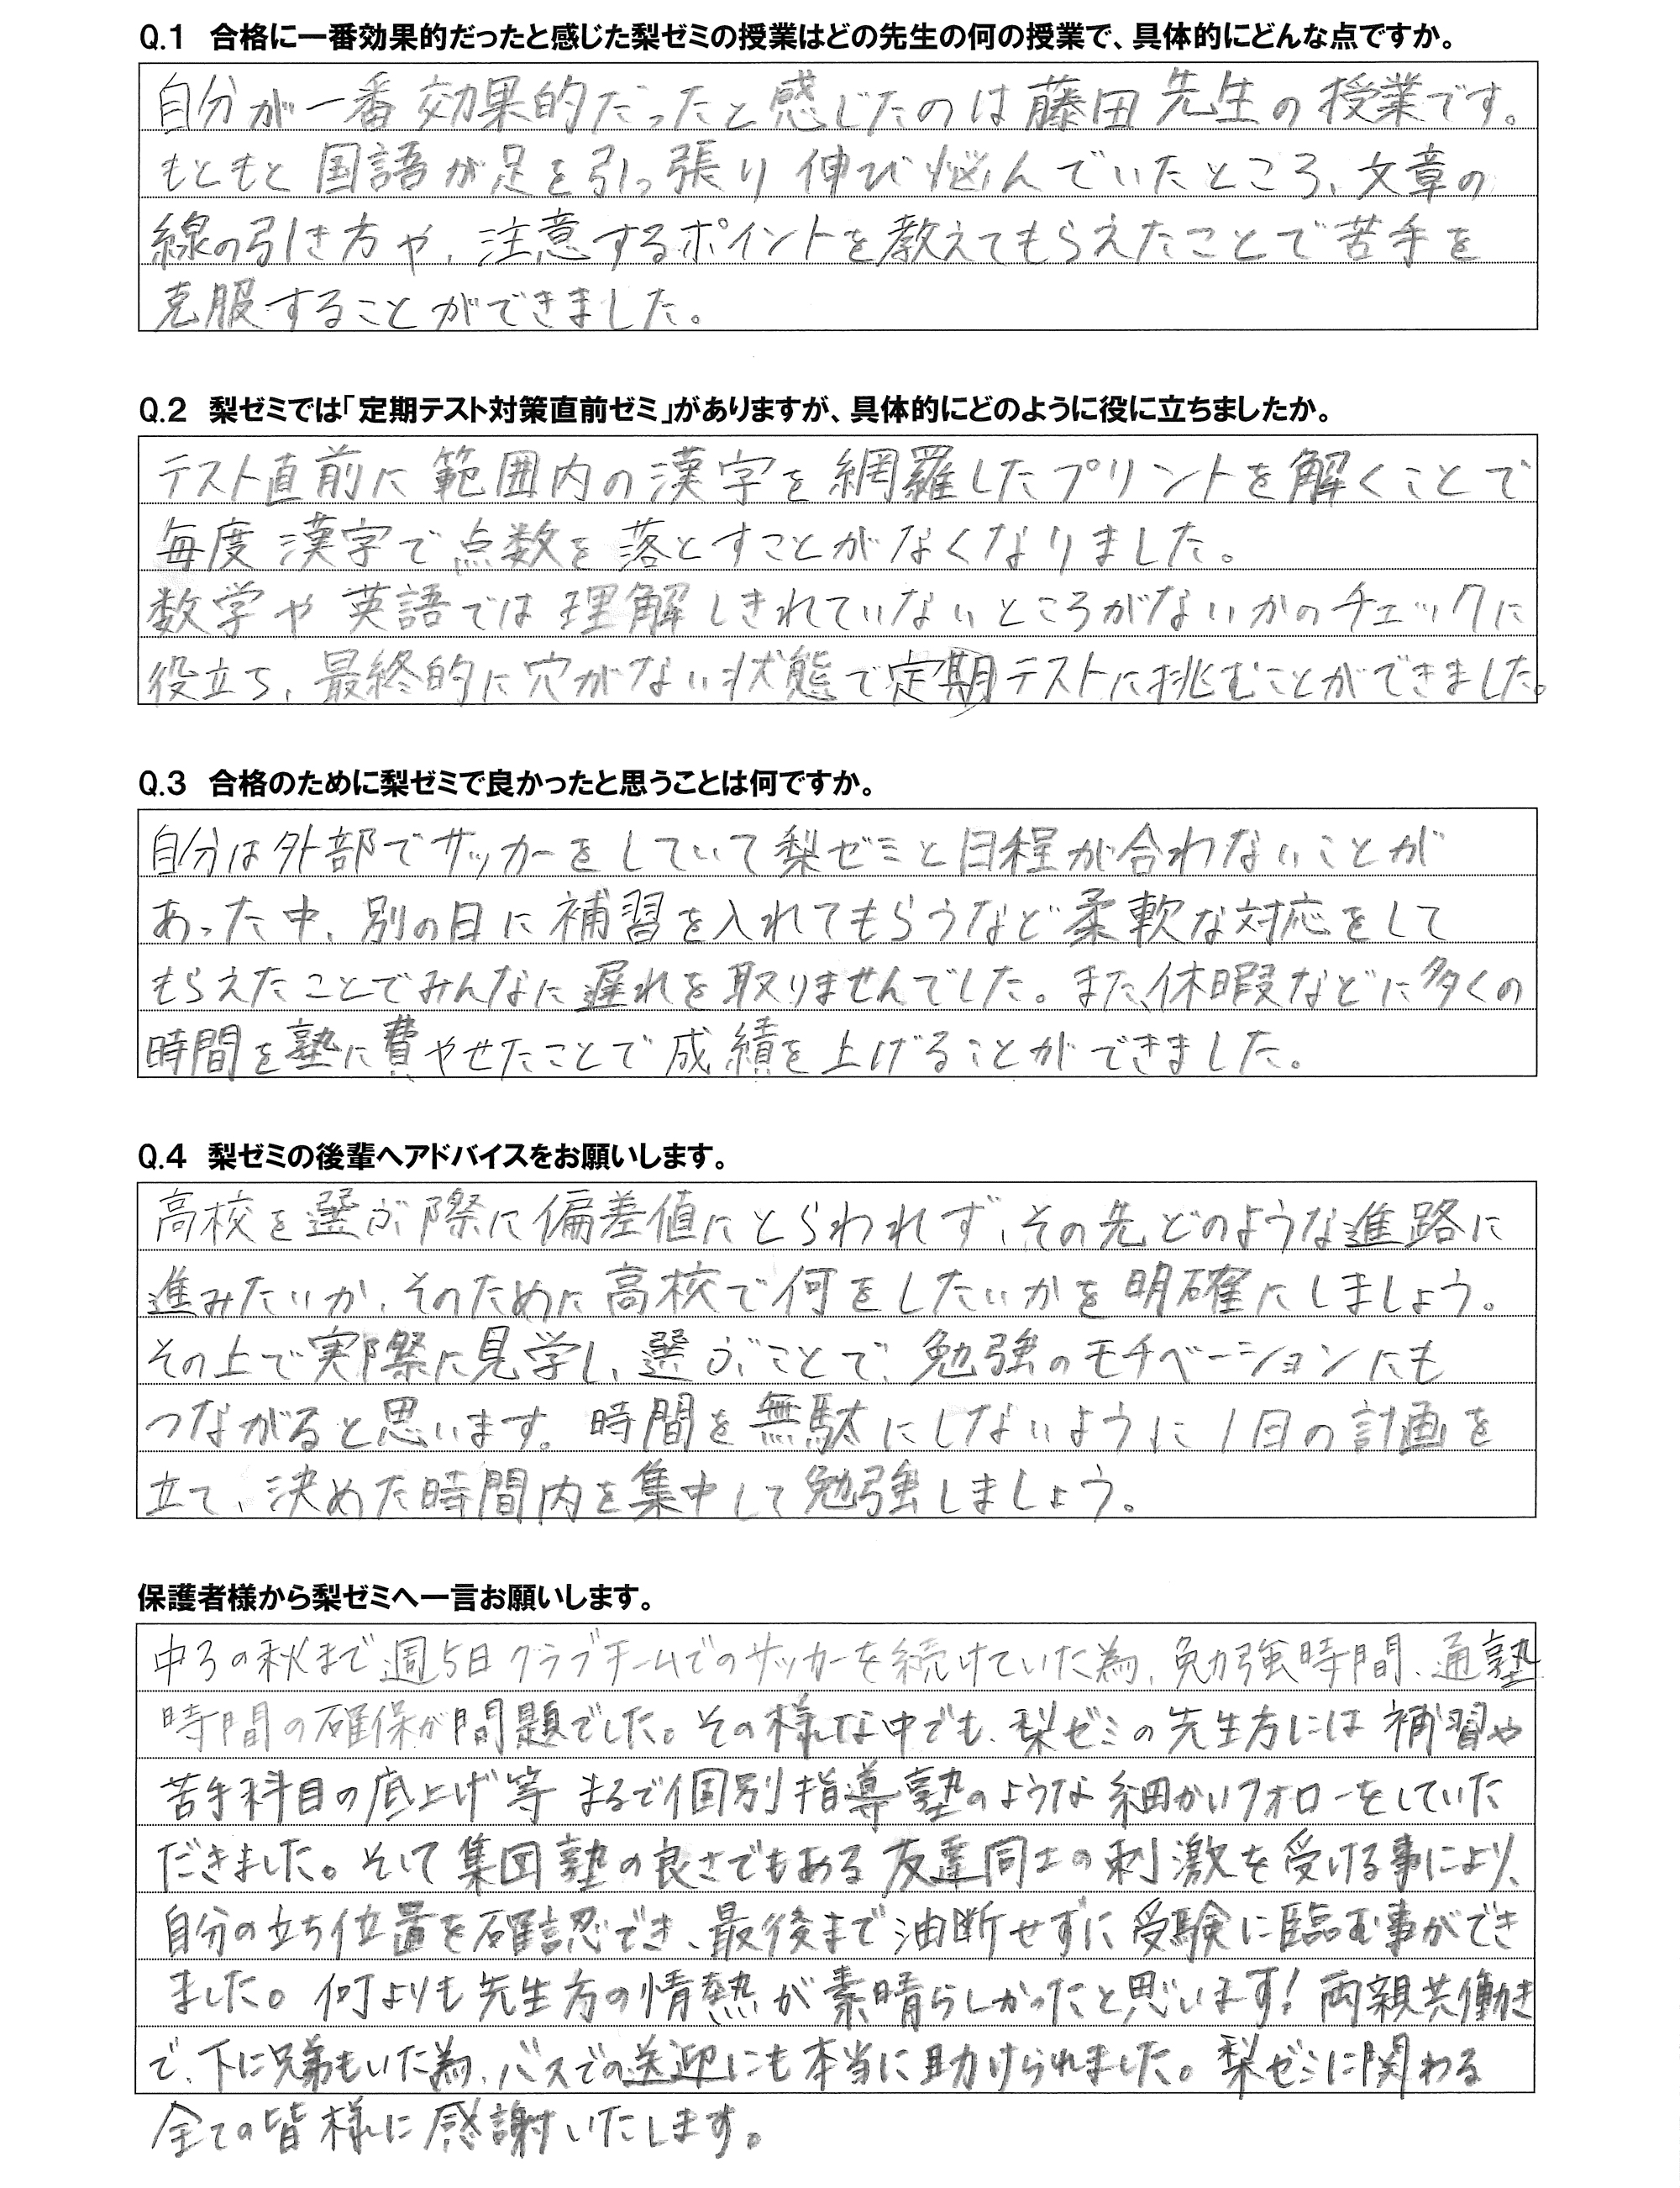 Q.1 合格に一番効果的だったと感じた梨ゼミの授業はどの先生の何の授業で、具体的にどんな点ですか。
自分が一番効果的だったと感じたのは藤田先生の授業です。
もともと国語が足を引っ張り伸び悩んでいたところ、文章の
線の引き方や、注意するポイントを教えてもらえたことで苦手を
克服することができました。
Q.2 梨ゼミでは「定期テスト対策直前ゼミ」がありますが、具体的にどのように役に立ちましたか。
テスト直前に範囲内の漢字を網羅したプリントを解くことで
毎度漢字で点数を落とすことがなくなりました。
数学や英語では理解しきれていないところがないかのチェックに
役立ち、最終的に穴がない状態で定期テストに挑むことができました。
Q.3 合格のために梨ゼミで良かったと思うことは何ですか。
自分は外部でサッカーをしていて梨ゼミと日程が合わないことが
あった中、別の日に補習を入れてもらうなど柔軟な対応をして
もらえたことでみんなに遅れを取りませんでした。また、休暇などに多くの
時間を塾に費やせたことで成績を上げることができました。
Q.4 梨ゼミの後輩へアドバイスをお願いします。
高校を選ぶ際に偏差値にとらわれず、その先どのような進路に
進みたいか、そのために高校で何をしたいかを明確にしましょう。
その上で実際に見学し、選ぶことで、勉強のモチベーションにも
つながると思います。時間を無駄にしないように1日の計画を
立て、決めた時間内を集中して勉強しましょう。
保護者様から梨ゼミへ一言お願いします。
中3の秋まで週5日クラブチームでのサッカーを続けていた為、勉強時間、通塾
時間の確保が問題でした。その様な中でも、梨ゼミの先生方には補習や
苦手科目の底上げ等まるで個別指導塾のような細かいフォローをしていた
だきました。そして集団塾の良さでもある友達同士の刺激を受ける事により、
自分の立ち位置を確認でき、最後まで油断せずに受験に臨む事ができ
ました。何よりも先生方の情熱が素晴らしかったと思います!両親共働き
で、下に兄弟もいた為、バスでの送迎にも本当に助けられました。梨ゼミに関わる
全ての皆様に感謝いたします。